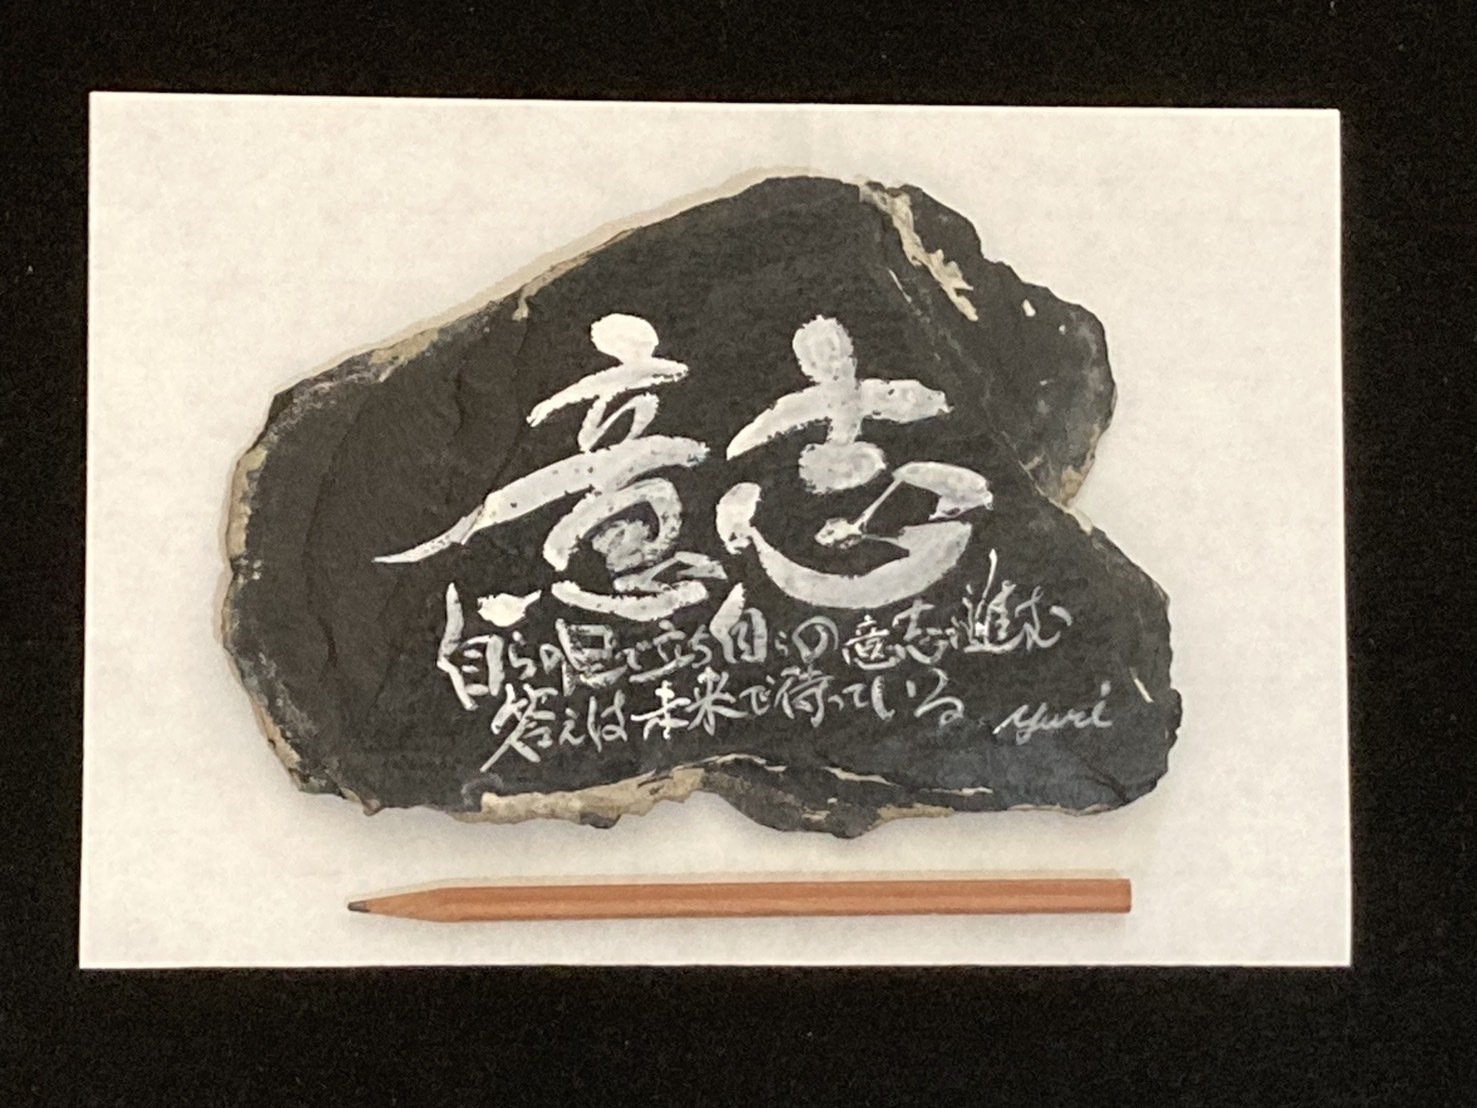 意志
自らの足で立ち自らの意志で進む
答えは未来で待っている
yuri